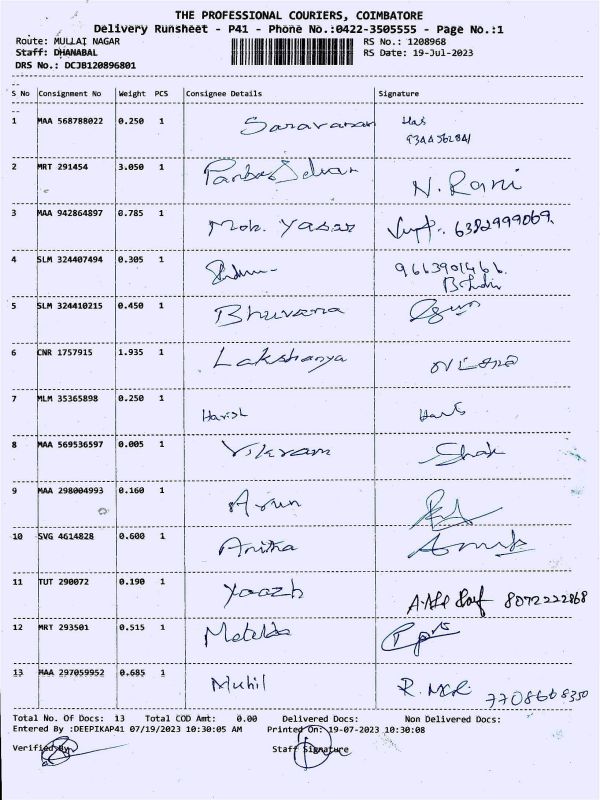 THE PROFESSIONAL COURIERS, COIMBATORE
Delivery Runsheet - P41 - Phone No.:0422-3505555 - Page No.:1
Route: MULLAI NAGAR RS No.: 1208968
Staff: DHANABAL RS Date: 19-Jul-2023
DRS No.: DCJB120896801
S No Consignment No Weight PCS Consignee Details Signature
1 MAA 568788022 0.250 1 Saravanan
2 MRT 291454 3.050 1 N. Rani
3 MAA 942864897 0.785 1 Moh. Yasar 6382999069
4 SLM 324407494 0.305 1
5 SLM 324410215 0.450 1 Bhuvana
6 CNR 1757915 1.935 1 Lakshanya
7 MLM 35365898 0.250 1 Harish
8 MAA 569536597 0.005 1 Vikram
9 MAA 298004993 0.160 1 Arun
10 SVG 4614828 0.600 1 Anitha
11 TUT 290072 0.190 1 Yaazh 8072222868
12 MRT 293501 0.515 1
13 MAA 297059952 0.685 1 Muhil
7708668350
Total No. Of Docs: 13 Total COD Amt: 0.00 Delivered Docs: Non Delivered Docs:
Entered By :DEEPIKAP41 07/19/2023 10:30:05 AM Printed On: 19-07-2023 10:30:08
Verified By Staff Signature